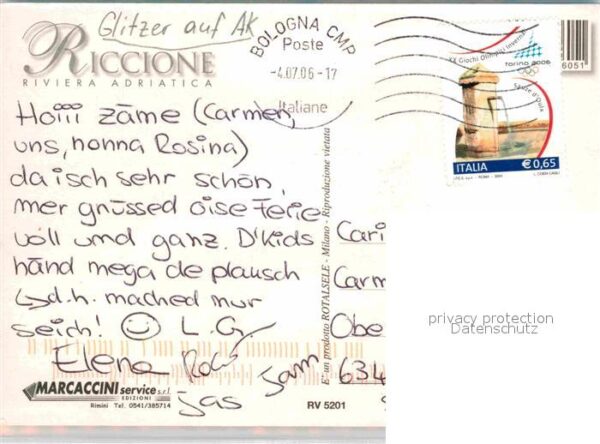 Glitzer auf AK
RICCIONE
RIVIERA ADRIATICA
BOLOGNA CMP
Poste
-4.07.06-17
Italiane
XX Giochi Olimpici Invernali
torino 2006
Sauze d'Oulx
ITALIA €0,65
6051
Hoiii zäme (Carmen,
uns, nonna Rosina)
da isch sehr schön,
mer grüssed oise Ferie
voll und ganz. D'Kids
händ mega de plausch
↳d.h. mached nur
seich! ☺ L.G.
Elena
Jas Sam
MARCACCINI service s.r.l.
EDIZIONI
Rimini Tel. 0541/385714
RV 5201
E' un prodotto ROTALSELE - Milano - Riproduzione vietata
Cari
Carm
Obe
634
privacy protection
Datenschutz